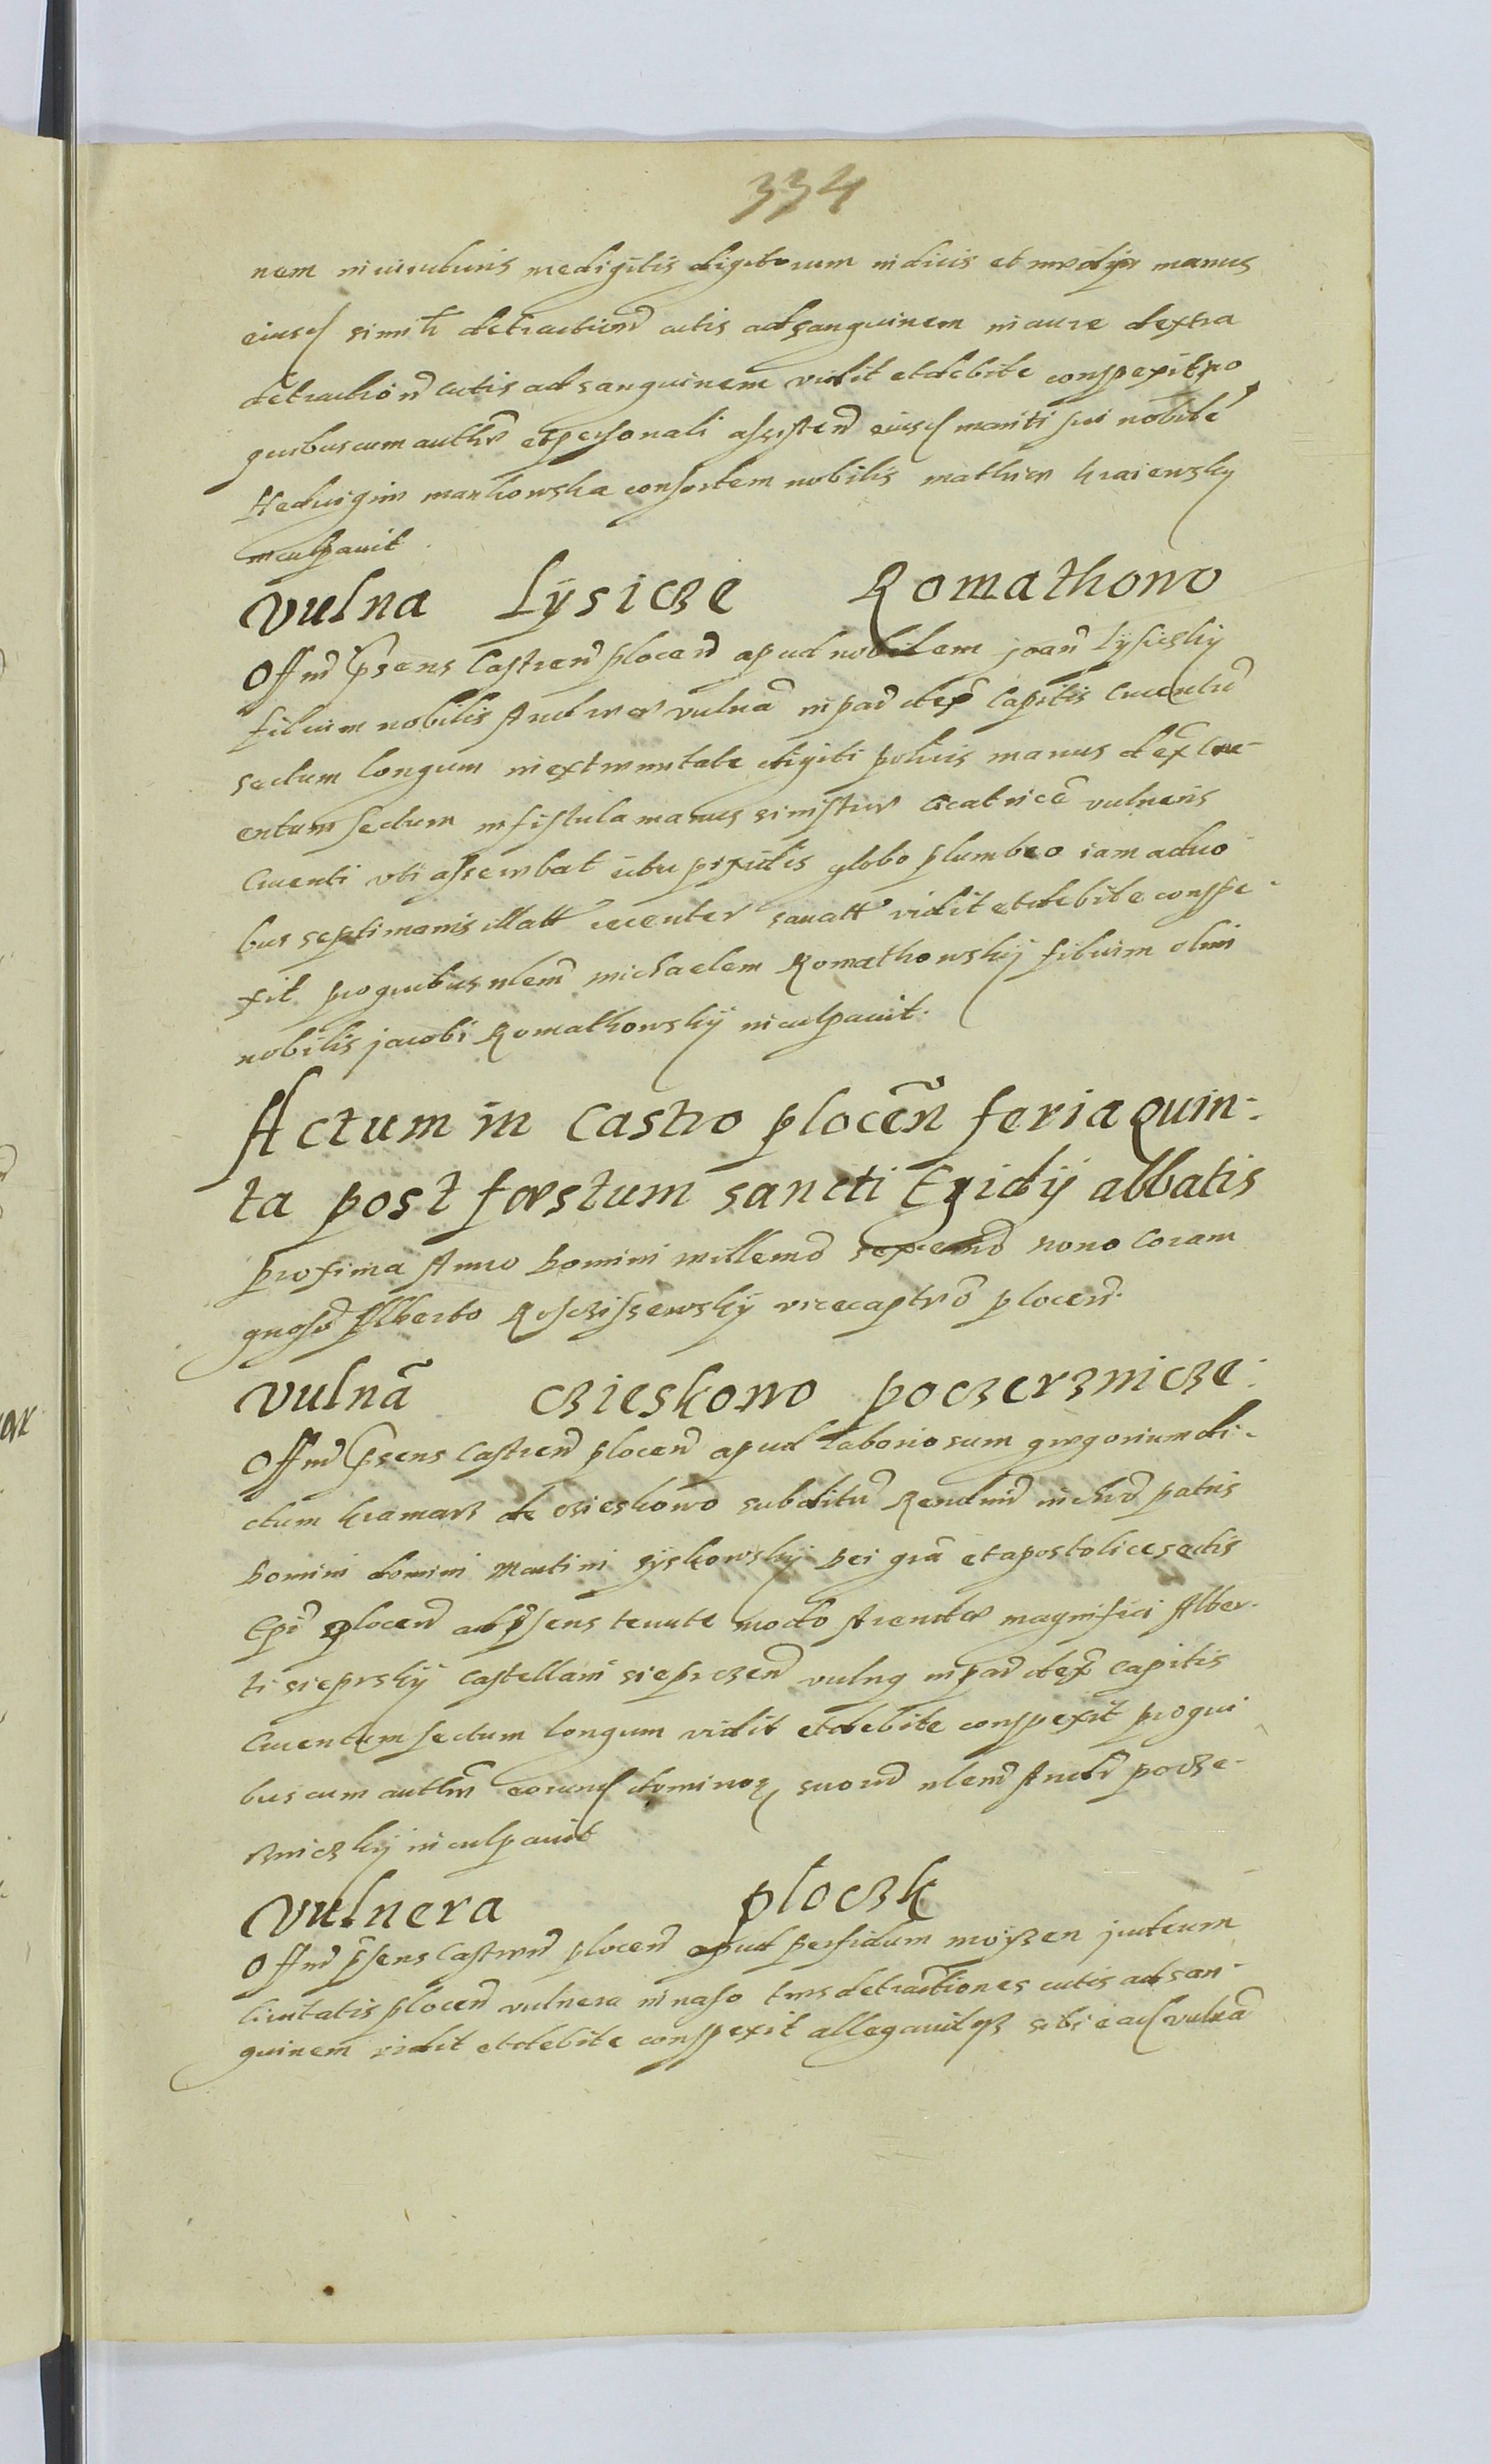 334
nem in iuncturis medigitis digitorum indicis et mediæ manus
eiusd simitr detractionē cutis ad sanguinem in aure dextra
detractionē cutis ad sanguinem vidit et debite conspexit pro
quibus cum auther et personali assisten eiusd mariti sui nobilē
Heduigim markowska consortem nobilis mathiæ kraiewsky
inculpauit.
Vulna Lysicze Romathowo
Offm psens Castren plocen apud nobilem joan Lysiczky
filium nobilis Andreæ vulnā in par dex Capitis Cruentū
sectum longum in extremitate digiti policis manus dex Cru-
entum sectum in fistula manus sinistræ Cicatricē vulneris
Cruenti vti asserebat ictu pixidis globo plumbeo iam a duo-
bus septimanis illatt recenter sanatt vidit et debite conspe-
xit pro quibus nlem michaelem Romathowsky filium olim
nobilis jacobi Romathowsky inculpauit.
Actum in Castro plocēn feria Quin-
ta post fæstum sancti Egidÿ abbatis
proxima Anno Domini millemō sexcemō nono Coram
gnoso Alberto Rosciszewsky vicecaptrō plocen.
Vulnā Czieskowo poczerznicze.
Offm psens Castren plocen apud laboriosum gregorium di-
ctum kramarz de Czieskowo subditū Rendmi in chrō patris
Domini domini Martini Syskowsky Dei grā et apostolice sedis
Epī plocen ad psens tenute modo Arendæ magnifici Alber-
ti sieprsky Castellani sieprczen vulnq in par dex Capitis
Cruentum sectum longum vidit et debite conspexit pro qui
bus cum authm eorund dominoꝝ suorū nlem Andr pocze-
rniczky inculpauit
Vulnera ploczk
Offm psens Castren plocen apud perfidum moyzen judeum
Ciuitatis plocen vulnera in naso tres detractiones cutis ad san-
guinem vidit et debite conspexit allegauitqꝫ sibi ead vulnā